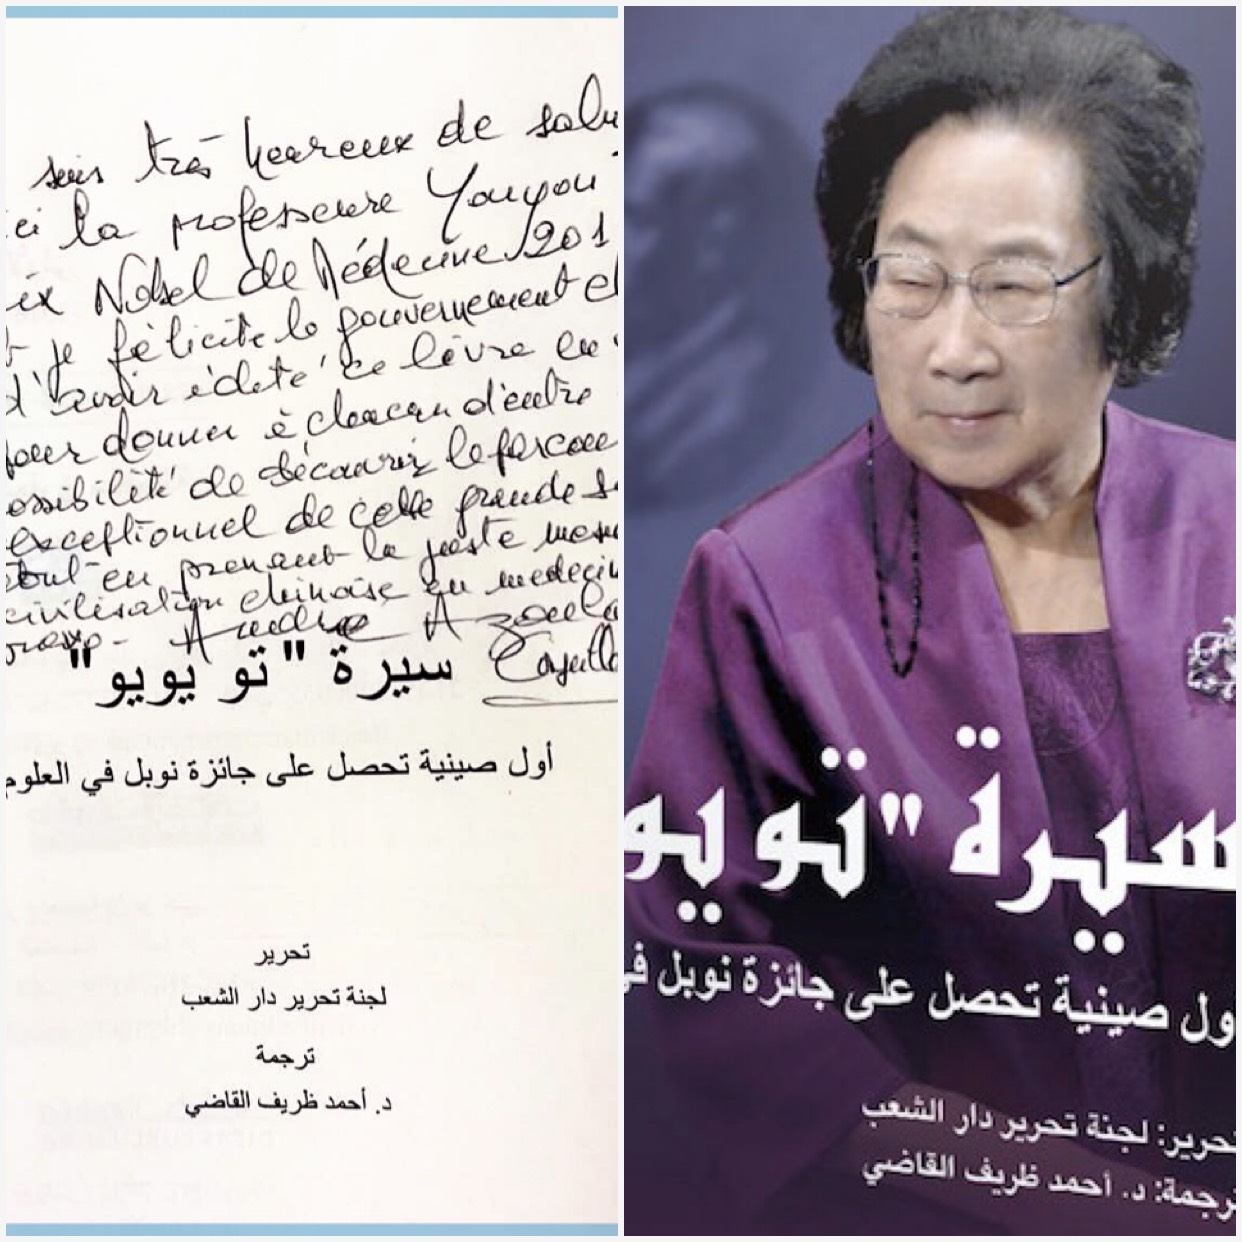 suis très heureux de salu
ici la professeure Youyou
ix Nobel de Médecine 201
t je félicite le gouvernement et
d'avoir édité ce livre en
pour donner à chacun d'entre
ossibilité de découvrir le parcou
exceptionnel de cette grande S
tout en prenant la juste mesu
civilisation chinoise en medecin
André Azoula
سيرة "تو يويو"
أول صينية تحصل على جائزة نوبل في العلوم
تحرير
لجنة تحرير دار الشعب
ترجمة
د. أحمد ظريف القاضي
سيرة "تو يو
ول صينية تحصل على جائزة نوبل في
تحرير: لجنة تحرير دار الشعب
ترجمة: د. أحمد ظريف القاضي